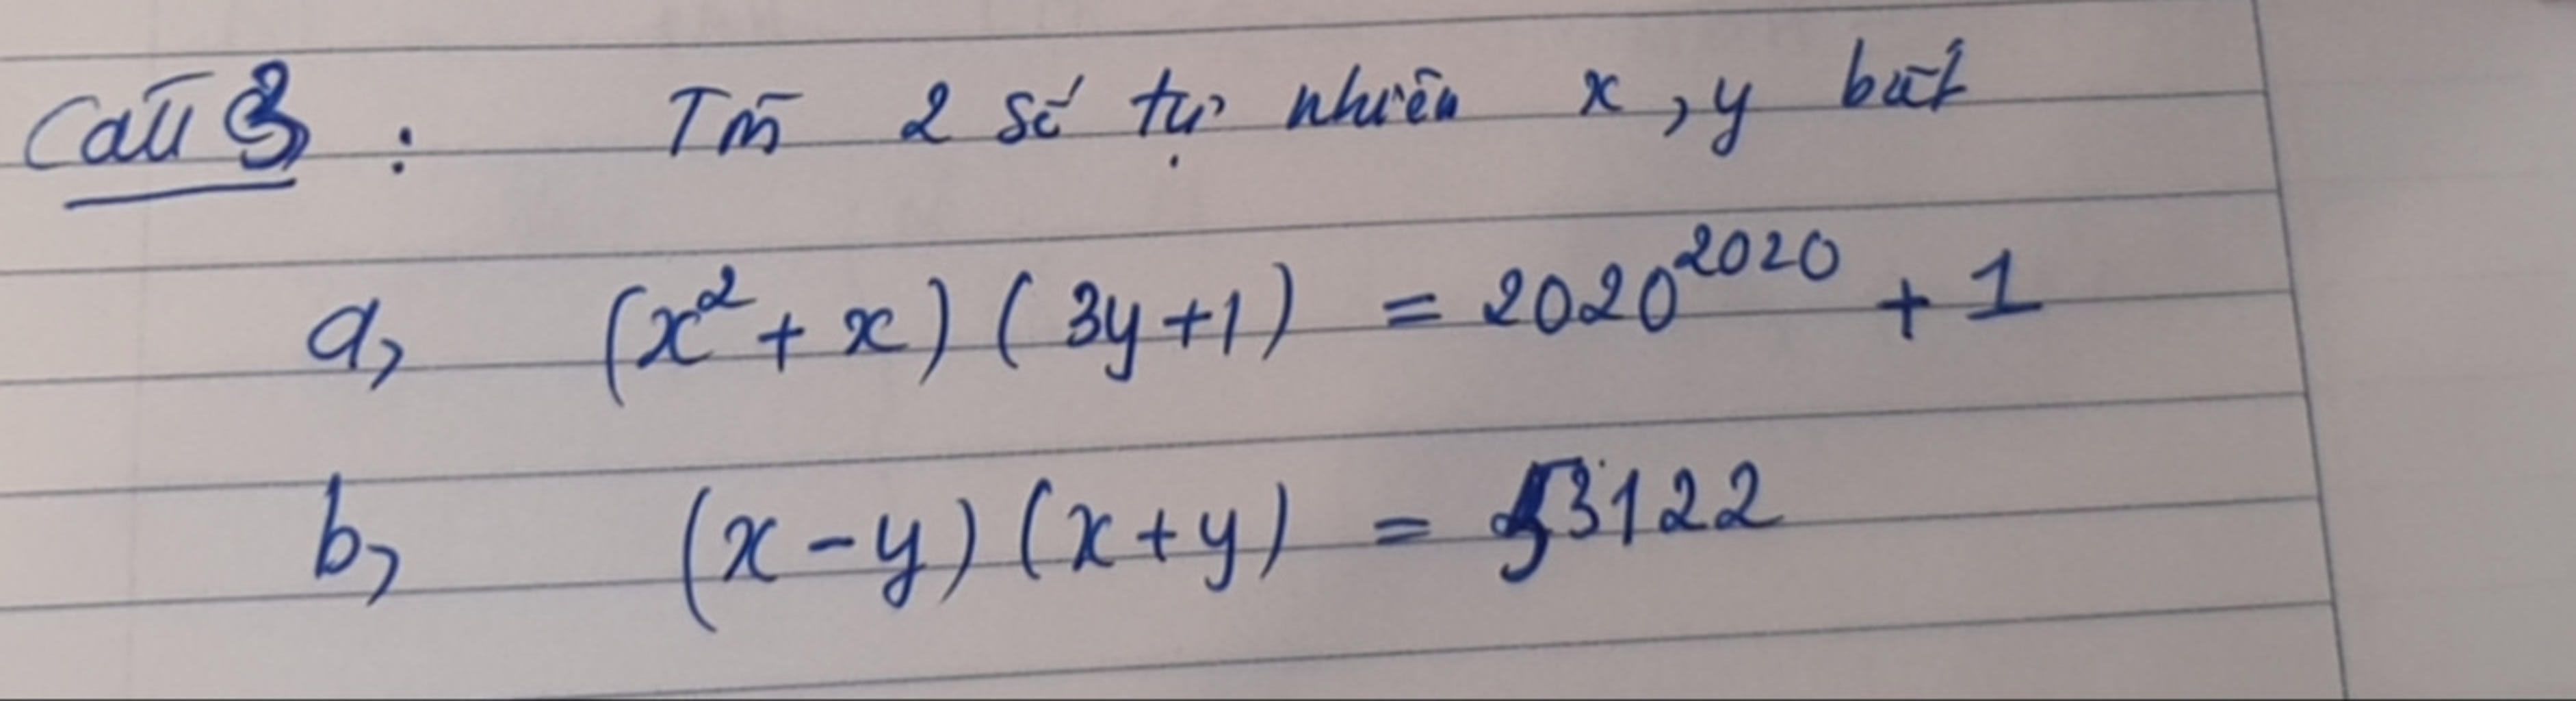 Câu 3 : Tìm 2 số tự nhiên x, y biết
a, (x² + x) ( 3y+1) = 2020²⁰²⁰ + 1
b, (x - y) (x + y) = 53122